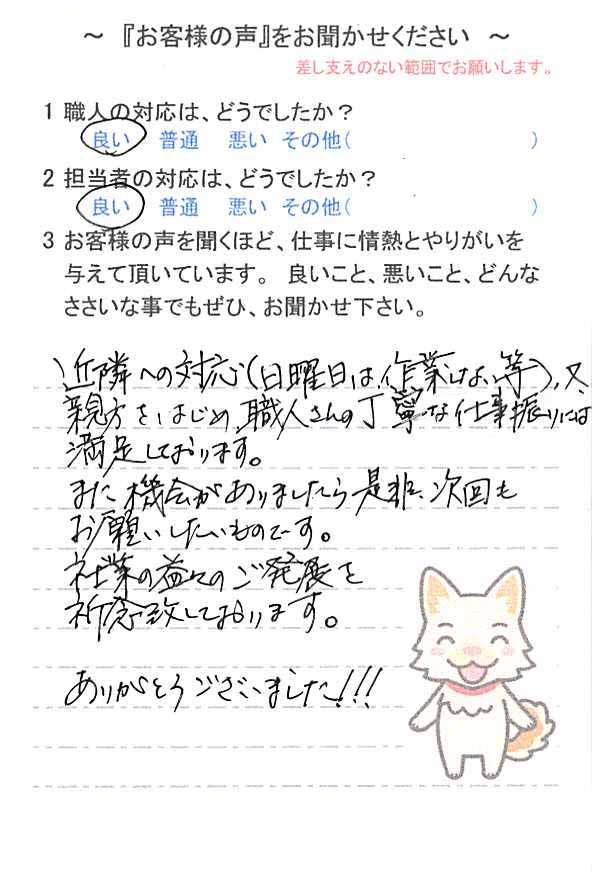 ～ 『お客様の声』をお聞かせください ～
差し支えのない範囲でお願いします。
1 職人の対応は、どうでしたか？
良い 普通 悪い その他( )
2 担当者の対応は、どうでしたか？
良い 普通 悪い その他( )
3 お客様の声を聞くほど、仕事に情熱とやりがいを
与えて頂いています。 良いこと、悪いこと、どんな
ささいな事でもぜひ、お聞かせ下さい。
近隣への対応(日曜日は、作業はよい等)、又、
親方をはじめ、職人さんの丁寧な仕事振りには
満足しております。
また機会がありましたら是非、次回も
お願いしたいものです。
社業の益々のご発展を
祈念致しております。
ありがとうございました!!!